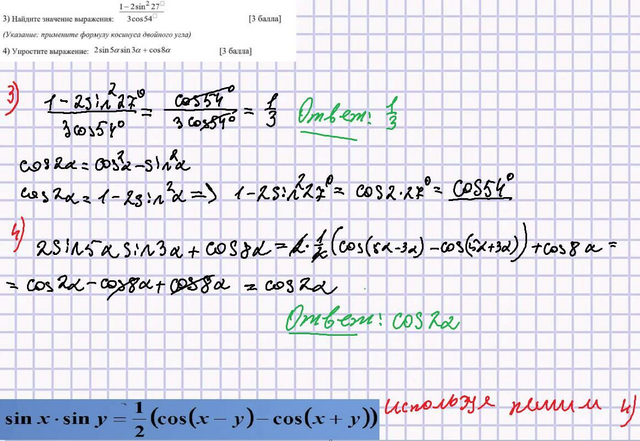 3) Найдите значение выражения: (1−2sin²27°)/(3cos54°) [3 балла]
(Указание: примените формулу косинуса двойного угла)
4) Упростите выражение: 2sin5α sin3α + cos8α [3 балла]
3) (1−2sin²27°)/(3cos54°) = cos54°/(3cos54°) = 1/3 Ответ: 1/3
cos2α = cos²α − sin²α
cos2α = 1−2sin²α => 1−2sin²27° = cos2·27° = cos54°
4) 2sin5α sin3α + cos8α = 2·1/2(cos(5α−3α) − cos(5α+3α)) + cos8α =
= cos2α − cos8α + cos8α = cos2α
Ответ: cos2α
sin x · sin y = 1/2 (cos(x − y) − cos(x + y)) используя 4)